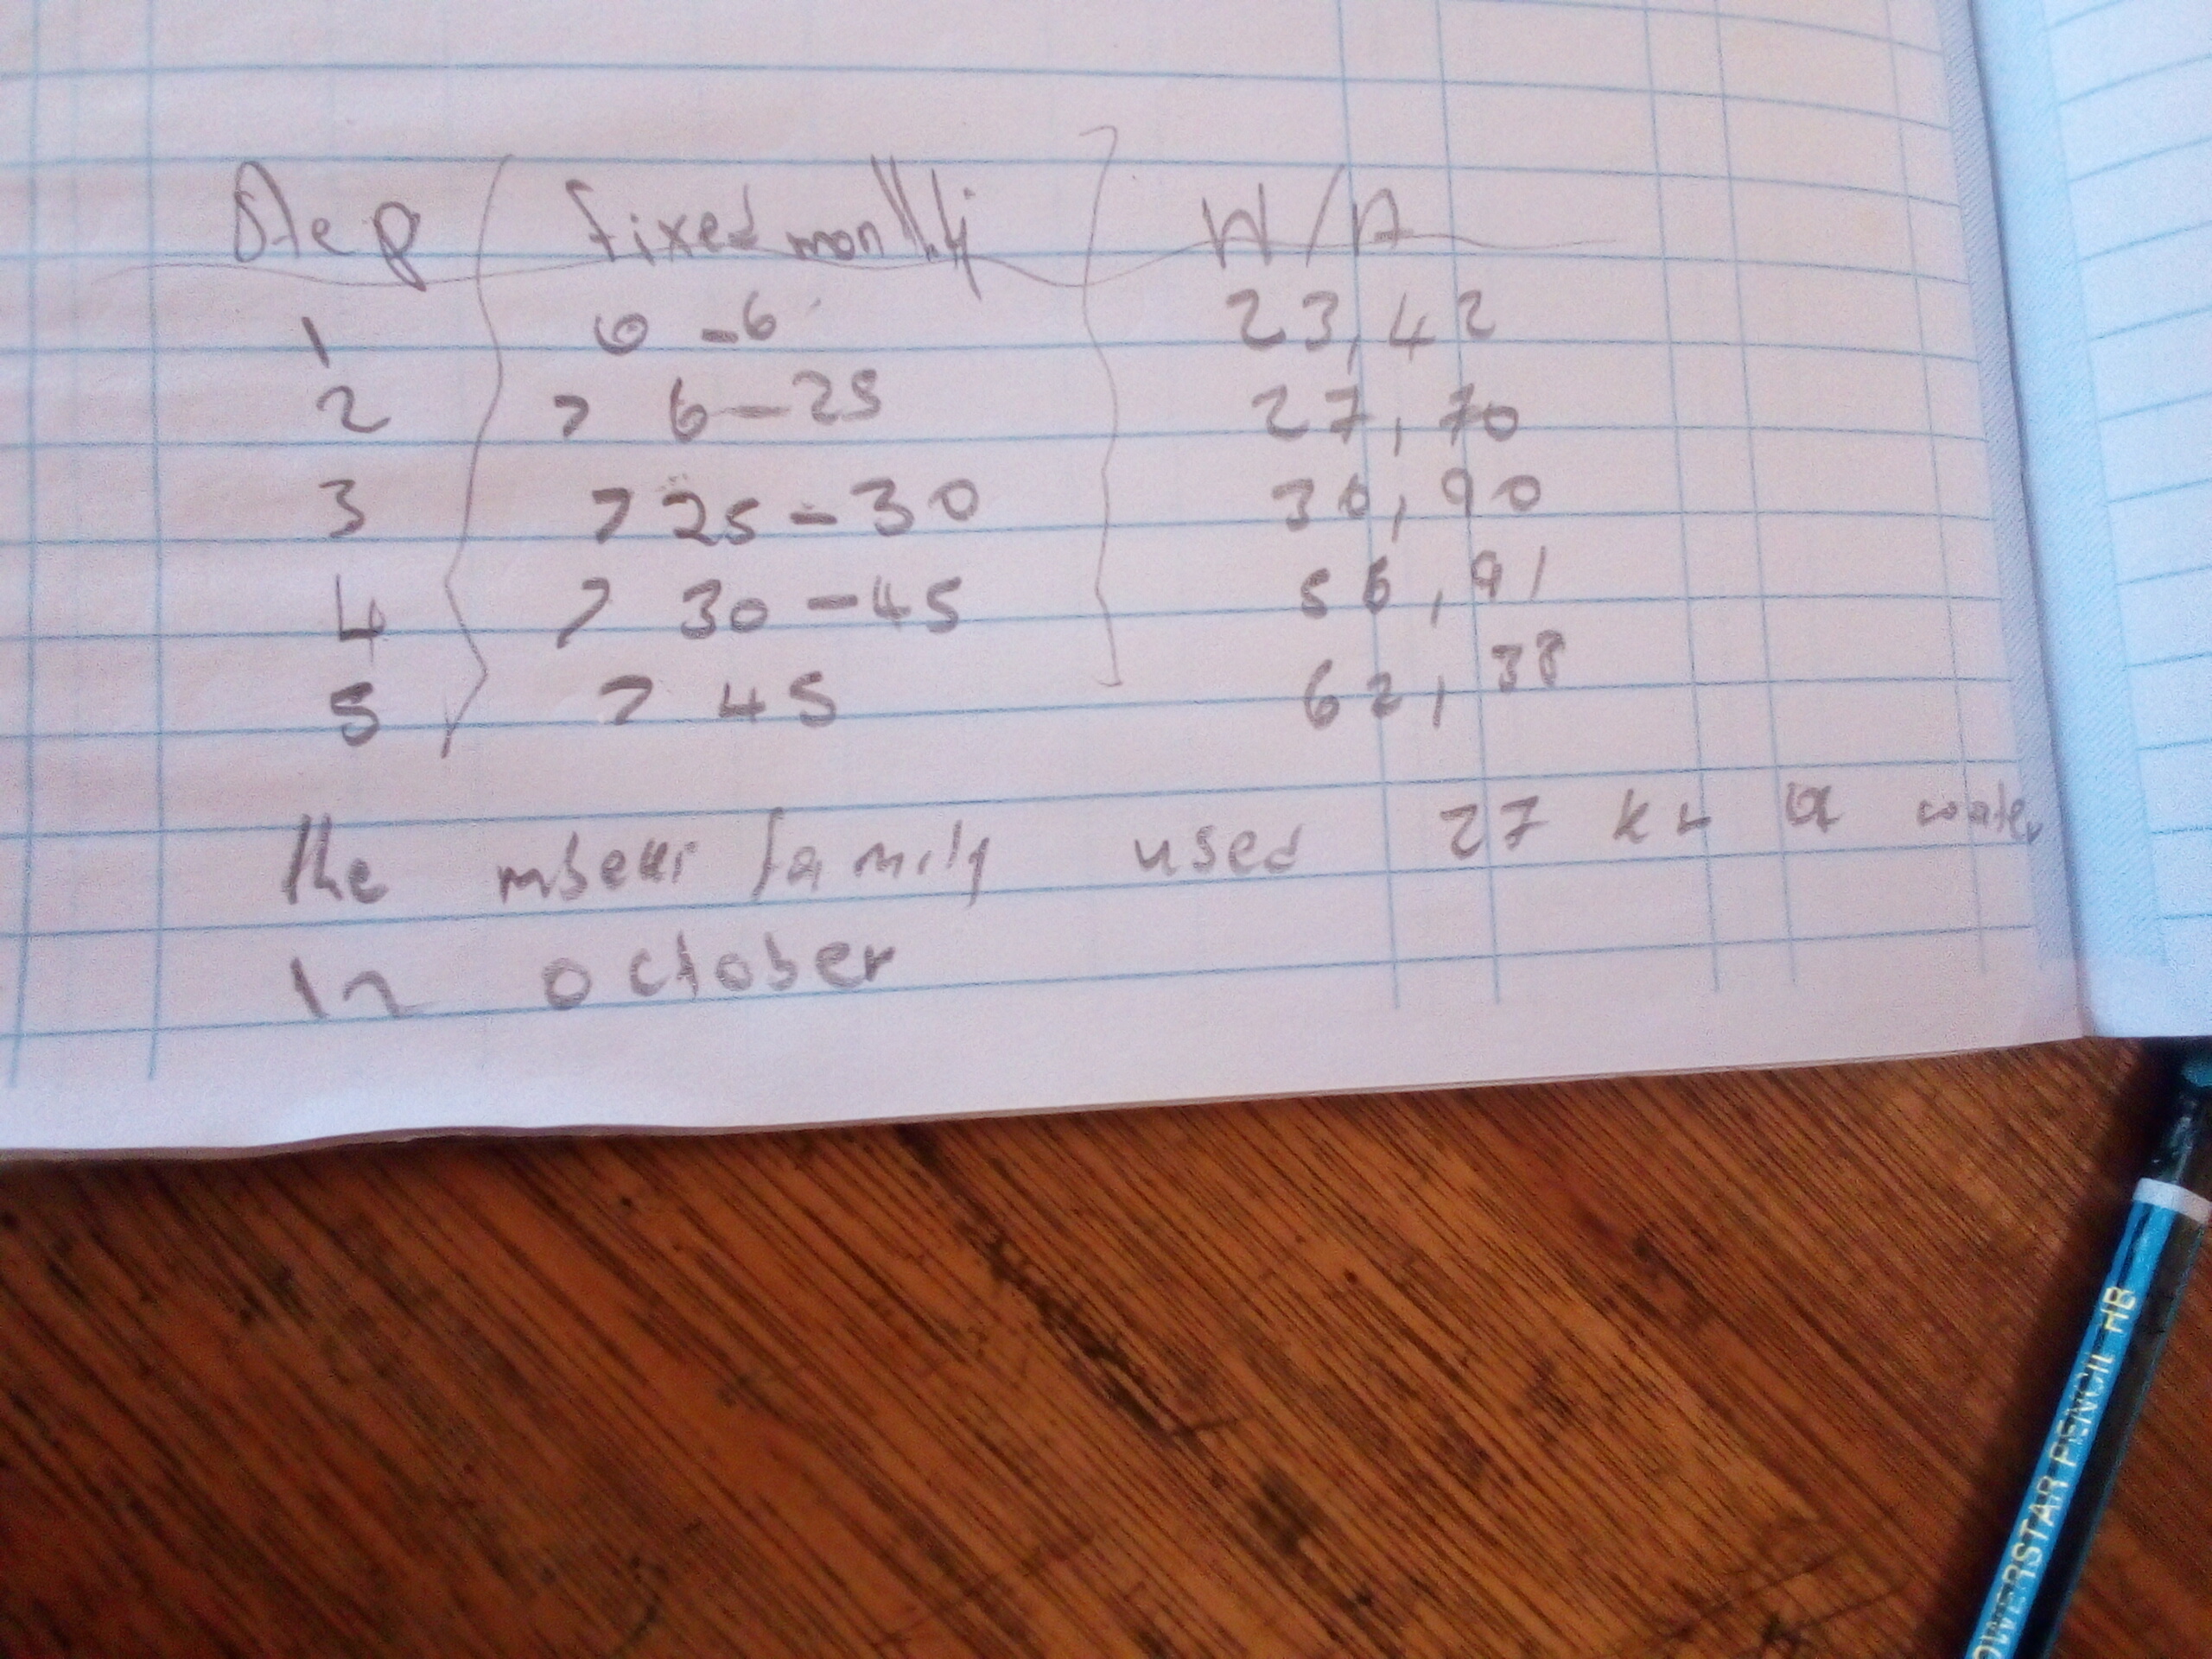 fixed monthly W/A
1 0-6 23,42
2 > 6-25 27,70
3 > 25-30 36,90
4 > 30-45 56,91
5 > 45 62,38
The mseur family used 27 kL
In october
OWERSTAR PENCIL HB